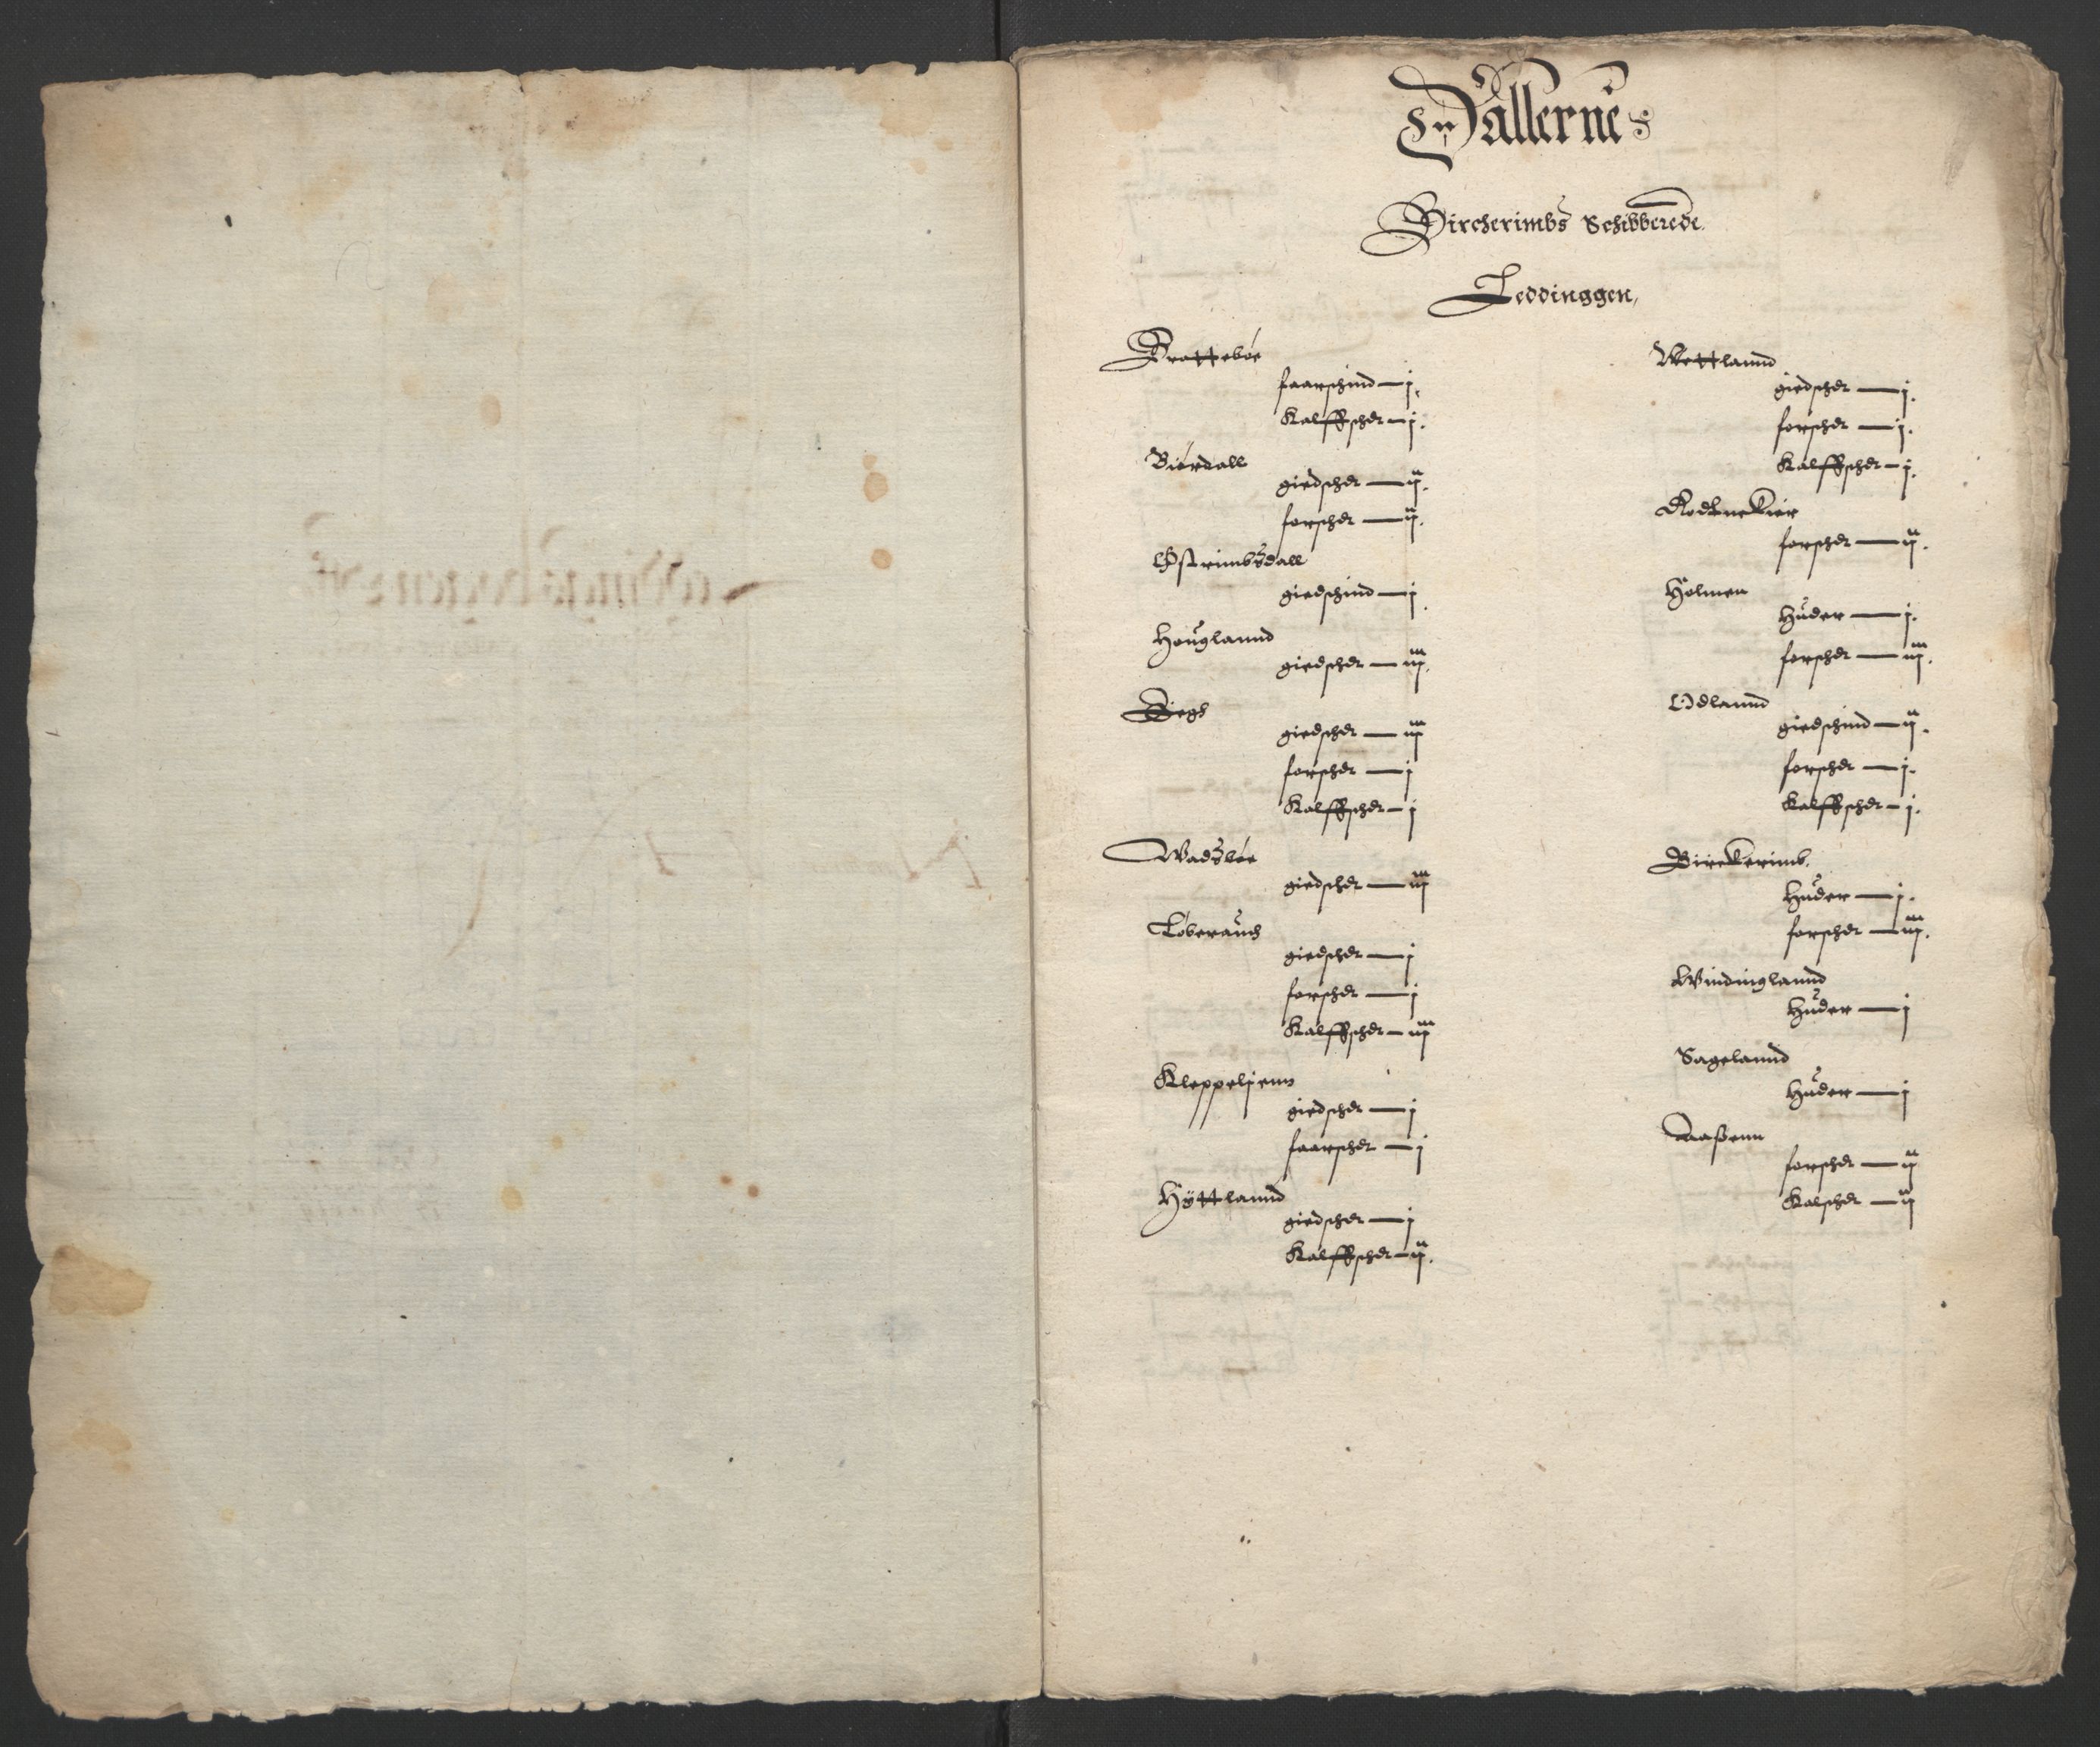 Dallerne
Bircherimbs Schibberede.
Leddinggen,
Brattebøe
faarschind — j.
Kalffscher — j.
Biørdall
giedscher — ij.
forscher — ij.
Østrimbsdall
giedschind — j.
Houglannd
giedscher — iij.
Eegh
giedscher — iij
forscher — j
Kalffscher — j
Wadsløe
giedscher — iij
giedscher — j
forscher — j
Kalffscher — iij
Kleppeljenn
giedscher — j
faarscher — j
Hÿttlannd
giedscher — j
Kalffscher — ij.
Wettlannd
giedscher — j.
forscher — j.
Kalffscher — j.
forscher — ij.
Holmen
Huder — j.
forscher — iij.
Odlannd
giedschind — ij.
forscher — j.
Kalffscher — j.
Birckerimb.
Huder — j.
forscher — iij.
Windinglannd
Huder — j
Sagelannd
Huder — j
Aaßenn
forscher — ij
Kalscher — ij